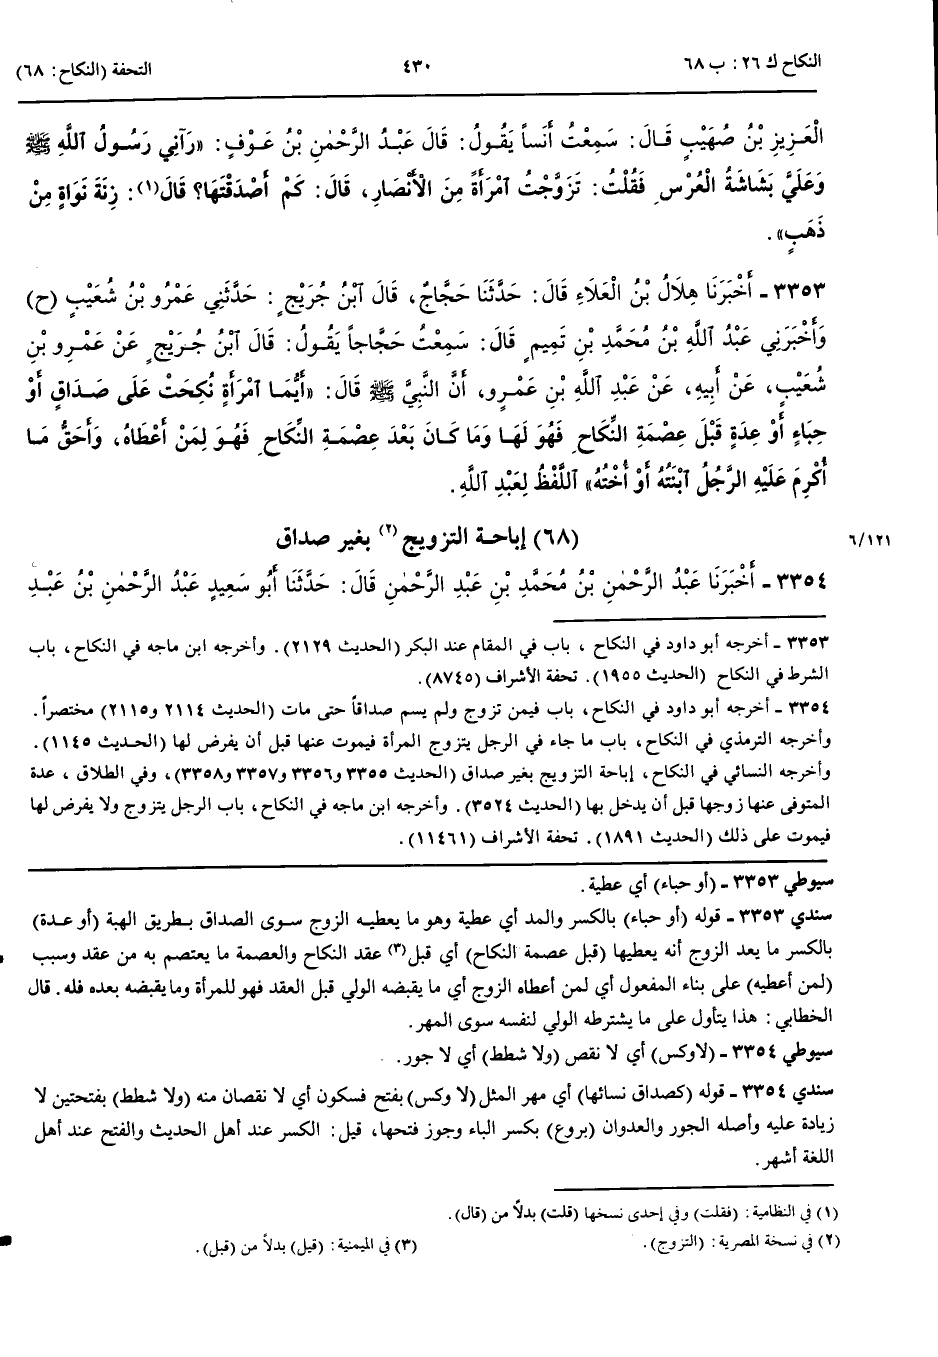 النكاح ك ٢٦: ب ٦٨ ٤٣٠ التحفة (النكاح: ٦٨)
الْعَزِيزِ بْنُ صُهَيْبٍ قَالَ: سَمِعْتُ أَنَساً يَقُولُ: قَالَ عَبْدُ الرَّحْمٰنِ بْنُ عَوْفٍ: «رَآنِي رَسُولُ ٱللَّهِ ﷺ
وَعَلَيَّ بَشَاشَةُ الْعُرْسِ فَقُلْتُ: تَزَوَّجْتُ ٱمْرَأَةً مِنَ الْأَنْصَارِ، قَالَ: كَمْ أَصْدَقْتَهَا؟ قَالَ(١): زِنَةَ نَوَاةٍ مِنْ
ذَهَبٍ».
٣٣٥٣ ـ أَخْبَرَنَا هِلَالُ بْنُ الْعَلَاءِ قَالَ: حَدَّثَنَا حَجَّاجٌ، قَالَ ٱبْنُ جُرَيْجٍ: حَدَّثَنِي عَمْرُو بْنُ شُعَيْبٍ (ح)
وَأَخْبَرَنِي عَبْدُ ٱللَّهِ بْنُ مُحَمَّدِ بْنِ تَمِيمٍ قَالَ: سَمِعْتُ حَجَّاجاً يَقُولُ: قَالَ ٱبْنُ جُرَيْجٍ عَنْ عَمْرِو بْنِ
شُعَيْبٍ، عَنْ أَبِيهِ، عَنْ عَبْدِ ٱللَّهِ بْنِ عَمْرٍو، أَنَّ النَّبِيَّ ﷺ قَالَ: «أَيُّمَا ٱمْرَأَةٍ نُكِحَتْ عَلَى صَدَاقٍ أَوْ
حِبَاءٍ أَوْ عِدَةٍ قَبْلَ عِصْمَةِ النِّكَاحِ فَهُوَ لَهَا وَمَا كَانَ بَعْدَ عِصْمَةِ النِّكَاحِ فَهُوَ لِمَنْ أَعْطَاهُ، وَأَحَقُّ مَا
أُكْرِمَ عَلَيْهِ الرَّجُلُ ٱبْنَتُهُ أَوْ أُخْتُهُ» ٱللَّفْظُ لِعَبْدِ ٱللَّهِ.
(٦٨) إباحة التزويج(٢) بغير صداق ٦/١٢١
٣٣٥٤ ـ أَخْبَرَنَا عَبْدُ الرَّحْمٰنِ بْنُ مُحَمَّدِ بْنِ عَبْدِ الرَّحْمٰنِ قَالَ: حَدَّثَنَا أَبُو سَعِيدٍ عَبْدُ الرَّحْمٰنِ بْنُ عَبْدِ
٣٣٥٣ ـ أخرجه أبو داود في النكاح، باب في المقام عند البكر (الحديث ٢١٢٩). وأخرجه ابن ماجه في النكاح، باب
الشرط في النكاح (الحديث ١٩٥٥). تحفة الأشراف (٨٧٤٥).
٣٣٥٤ ـ أخرجه أبو داود في النكاح، باب فيمن تزوج ولم يسم صداقاً حتى مات (الحديث ٢١١٤ و٢١١٥) مختصراً.
وأخرجه الترمذي في النكاح، باب ما جاء في الرجل يتزوج المرأة فيموت عنها قبل أن يفرض لها (الحديث ١١٤٥).
وأخرجه النسائي في النكاح، إباحة التزويج بغير صداق (الحديث ٣٣٥٥ و٣٣٥٦ و٣٣٥٧ و٣٣٥٨)، وفي الطلاق، عدة
المتوفى عنها زوجها قبل أن يدخل بها (الحديث ٣٥٢٤). وأخرجه ابن ماجه في النكاح، باب الرجل يتزوج ولا يفرض لها
فيموت على ذلك (الحديث ١٨٩١). تحفة الأشراف (١١٤٦١).
سيوطي ٣٣٥٣ ـ (أو حباء) أي عطية.
سندي ٣٣٥٣ ـ قوله (أو حباء) بالكسر والمد أي عطية وهو ما يعطيه الزوج سوى الصداق بطريق الهبة (أو عدة)
بالكسر ما يعد الزوج أنه يعطيها (قبل عصمة النكاح) أي قبل(٣) عقد النكاح والعصمة ما يعتصم به من عقد وسبب
(لمن أعطيه) على بناء المفعول أي لمن أعطاه الزوج أي ما يقبضه الولي قبل العقد فهو للمرأة وما يقبضه بعده فله. قال
الخطابي: هذا يتأول على ما يشترطه الولي لنفسه سوى المهر.
سيوطي ٣٣٥٤ ـ (لاوكس) أي لا نقص (ولا شطط) أي لا جور.
سندي ٣٣٥٤ ـ قوله (كصداق نسائها) أي مهر المثل (لا وكس) بفتح فسكون أي لا نقصان منه (ولا شطط) بفتحتين لا
زيادة عليه وأصله الجور والعدوان (بروع) بكسر الباء وجوز فتحها، قيل: الكسر عند أهل الحديث والفتح عند أهل
اللغة أشهر.
(١) في النظامية: (فقلت) وفي إحدى نسخها (قلت) بدلاً من (قال).
(٢) في نسخة المصرية: (التزوج). (٣) في الميمنية: (قيل) بدلاً من (قبل).